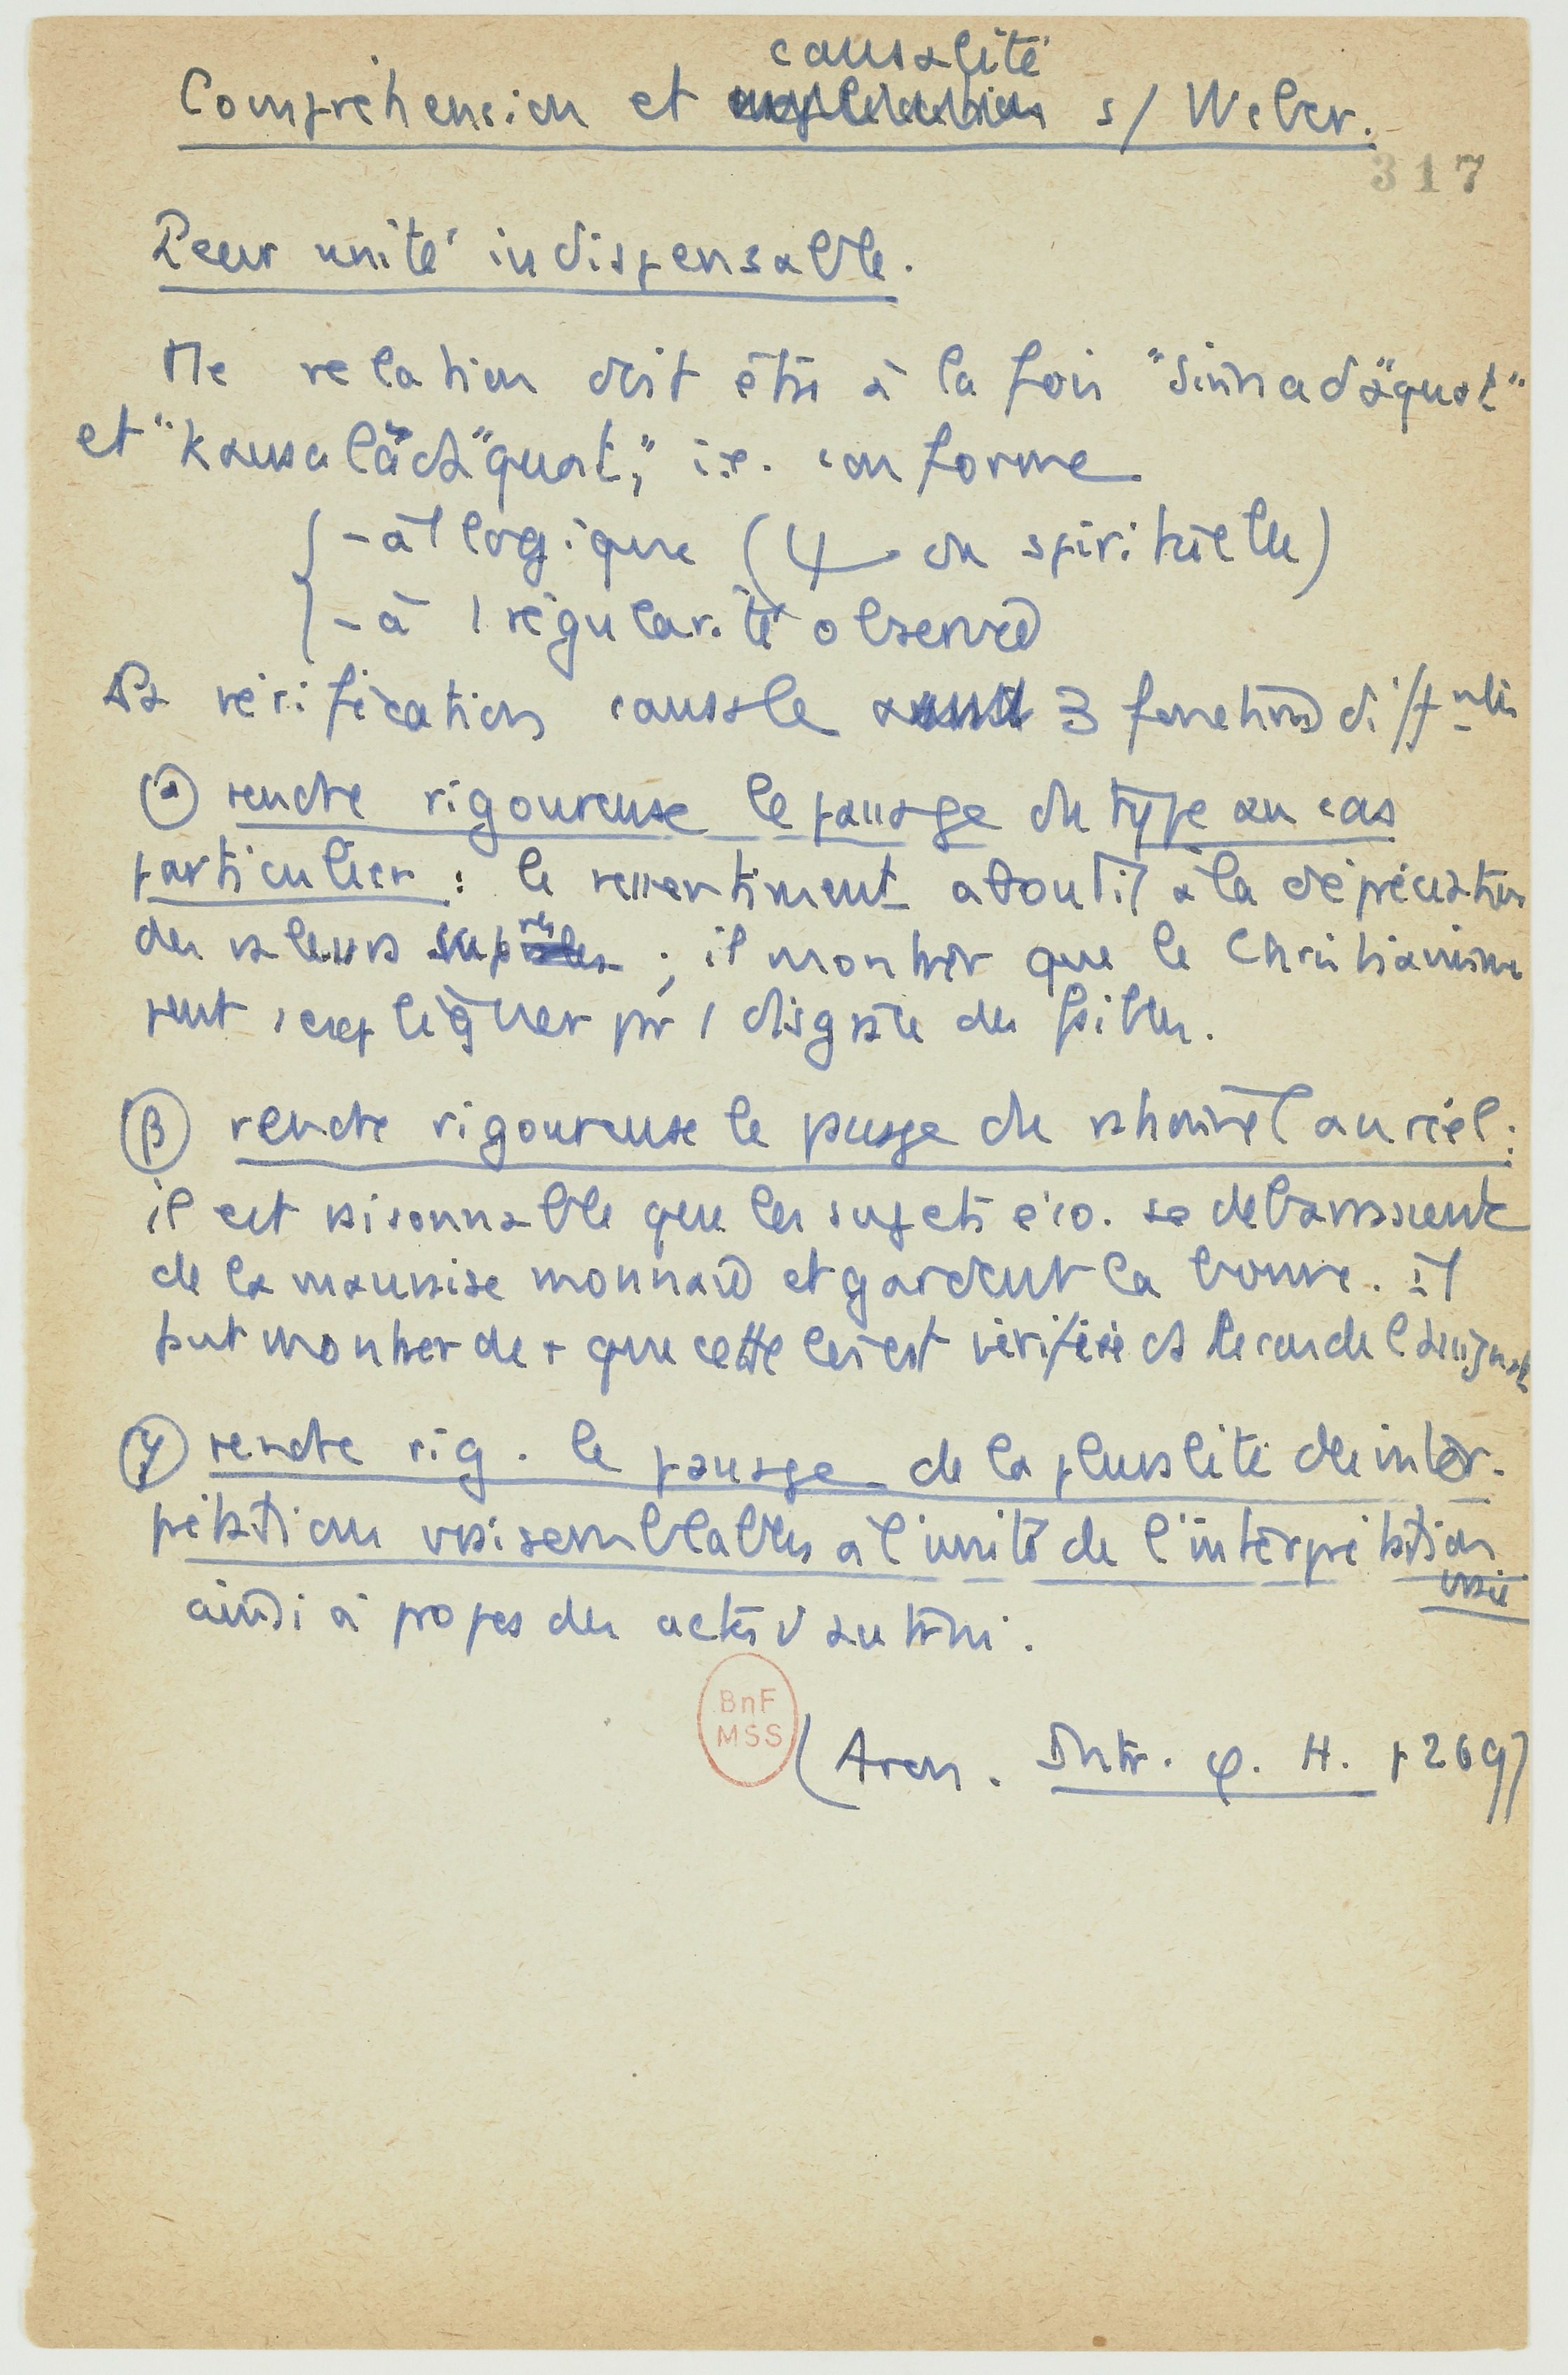 causalité
Compréhension et explication s/ Weber.
317
Leur unité indispensable.
Me relation doit être à la fois "sinnadäquat"
et "kausaladäquat", i.e. conforme
- à l logique (ψ ou spirituelle)
- à l régularité observée
La vérification causale a 3 fonctions diff ntes
α rendre rigoureuse le passage du type au cas
particulier : le ressentiment aboutit à la dépréciation
des valeurs sup res ; il montrer que le Christianisme
peut s'expliquer pr l disgrâce des faibles.
β rendre rigoureuse le passage du rationnel au réel :
il est raisonnable que les sujets éco. se débarrassent
de la mauvaise monnaie et gardent la bonne. Il
faut montrer de + que cette loi est vérifiée ds le cas de l'assignat
γ rendre rig. le passage de la pluralité des inter-
prétation vraisemblables à l'unité de l'interprétation
vraie
ainsi à propos des actes d'autrui.
BnF
MSS
(Aron. Intr. φ. H. p 269)